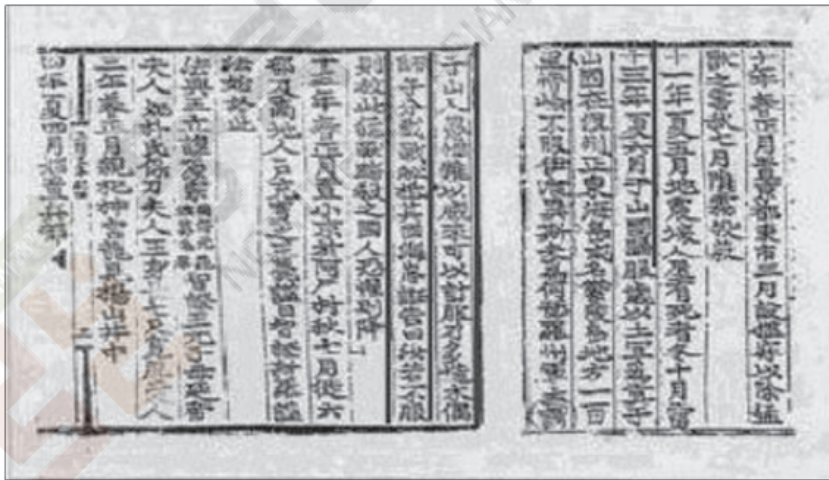 十年春正月置京都東市三月設檻穽以除猛
獸之害秋七月隕霜殺菽
十一年夏五月地震壞人屋有死者冬十月雷
十三年夏六月于山國歸服歲以土宜爲貢于
山國在溟州正東海島或名鬱陵島地方一百
里恃嶮不服伊湌異斯夫爲何瑟羅州軍主謂
于山人愚悍難以威來可以計服乃多造木偶
師子分載戰舡抵其國海岸誑告曰汝若不服
則放此猛獸踏殺之國人恐懼則降
十五年春正月置小京於阿尸村秋七月徙六
部及南地人戶充實之王薨諡曰智證新羅諡
法始於此
法興王立諱原宗 智證王元子母延帝
夫人妃朴氏保刀夫人王身長七尺寬厚愛人
三年春正月親祀神宮龍見楊山井中
四年夏四月始置兵部